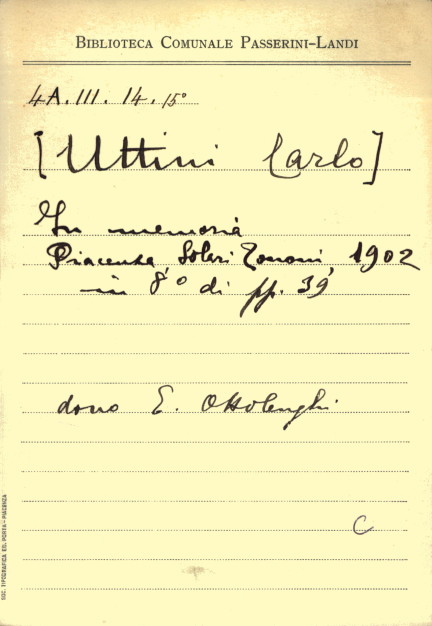 BIBLIOTECA COMUNALE PASSERINI-LANDI
4A.III.14.15°
[Uttini Carlo]
In memoria
Piacenza, Soleri Zanoni, 1902
in 8° di pp. 39
dono E. Ottolenghi
C
SOC. TIPOGRAFICA ED. PORTA - PIACENZA